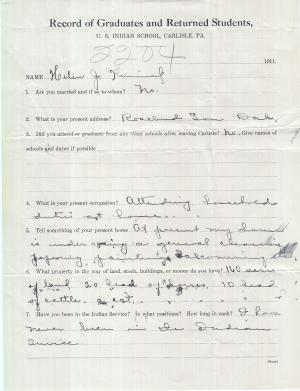 Record of Graduates and Returned Students,
U. S. INDIAN SCHOOL, CARLISLE, PA.
2204
1911.
NAME Helen J.
1. Are you married and if so to whom? No.
2. What is your present address? Rosebud So. Dak.
3. Did you attend or graduate from any other schools after leaving Carlisle? No. Give names of
schools and dates if possible
4. What is your present occupation? Attending household
duties at home.
5. Tell something of your present home At present my home
is under going a general cleaning
papering, painting,
6. What property in the way of land, stock, buildings, or money do you have? 160 acres
of land 20 head of horses, 10 head
of cattle.
7. Have you been in the Indian Service? In what positions? How long in each? I have
never been in the Indian
Service
(Over)